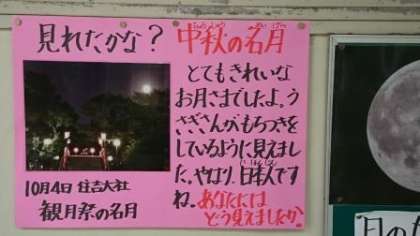 見れたかな？
中秋の名月
とてもきれいな
お月さまでしたよ、う
さぎさんがもちつきを
しているように見えまし
た。やはり、日本人です
ね。あなたには
どう見えましたか
10月4日 住吉大社
観月祭の名月